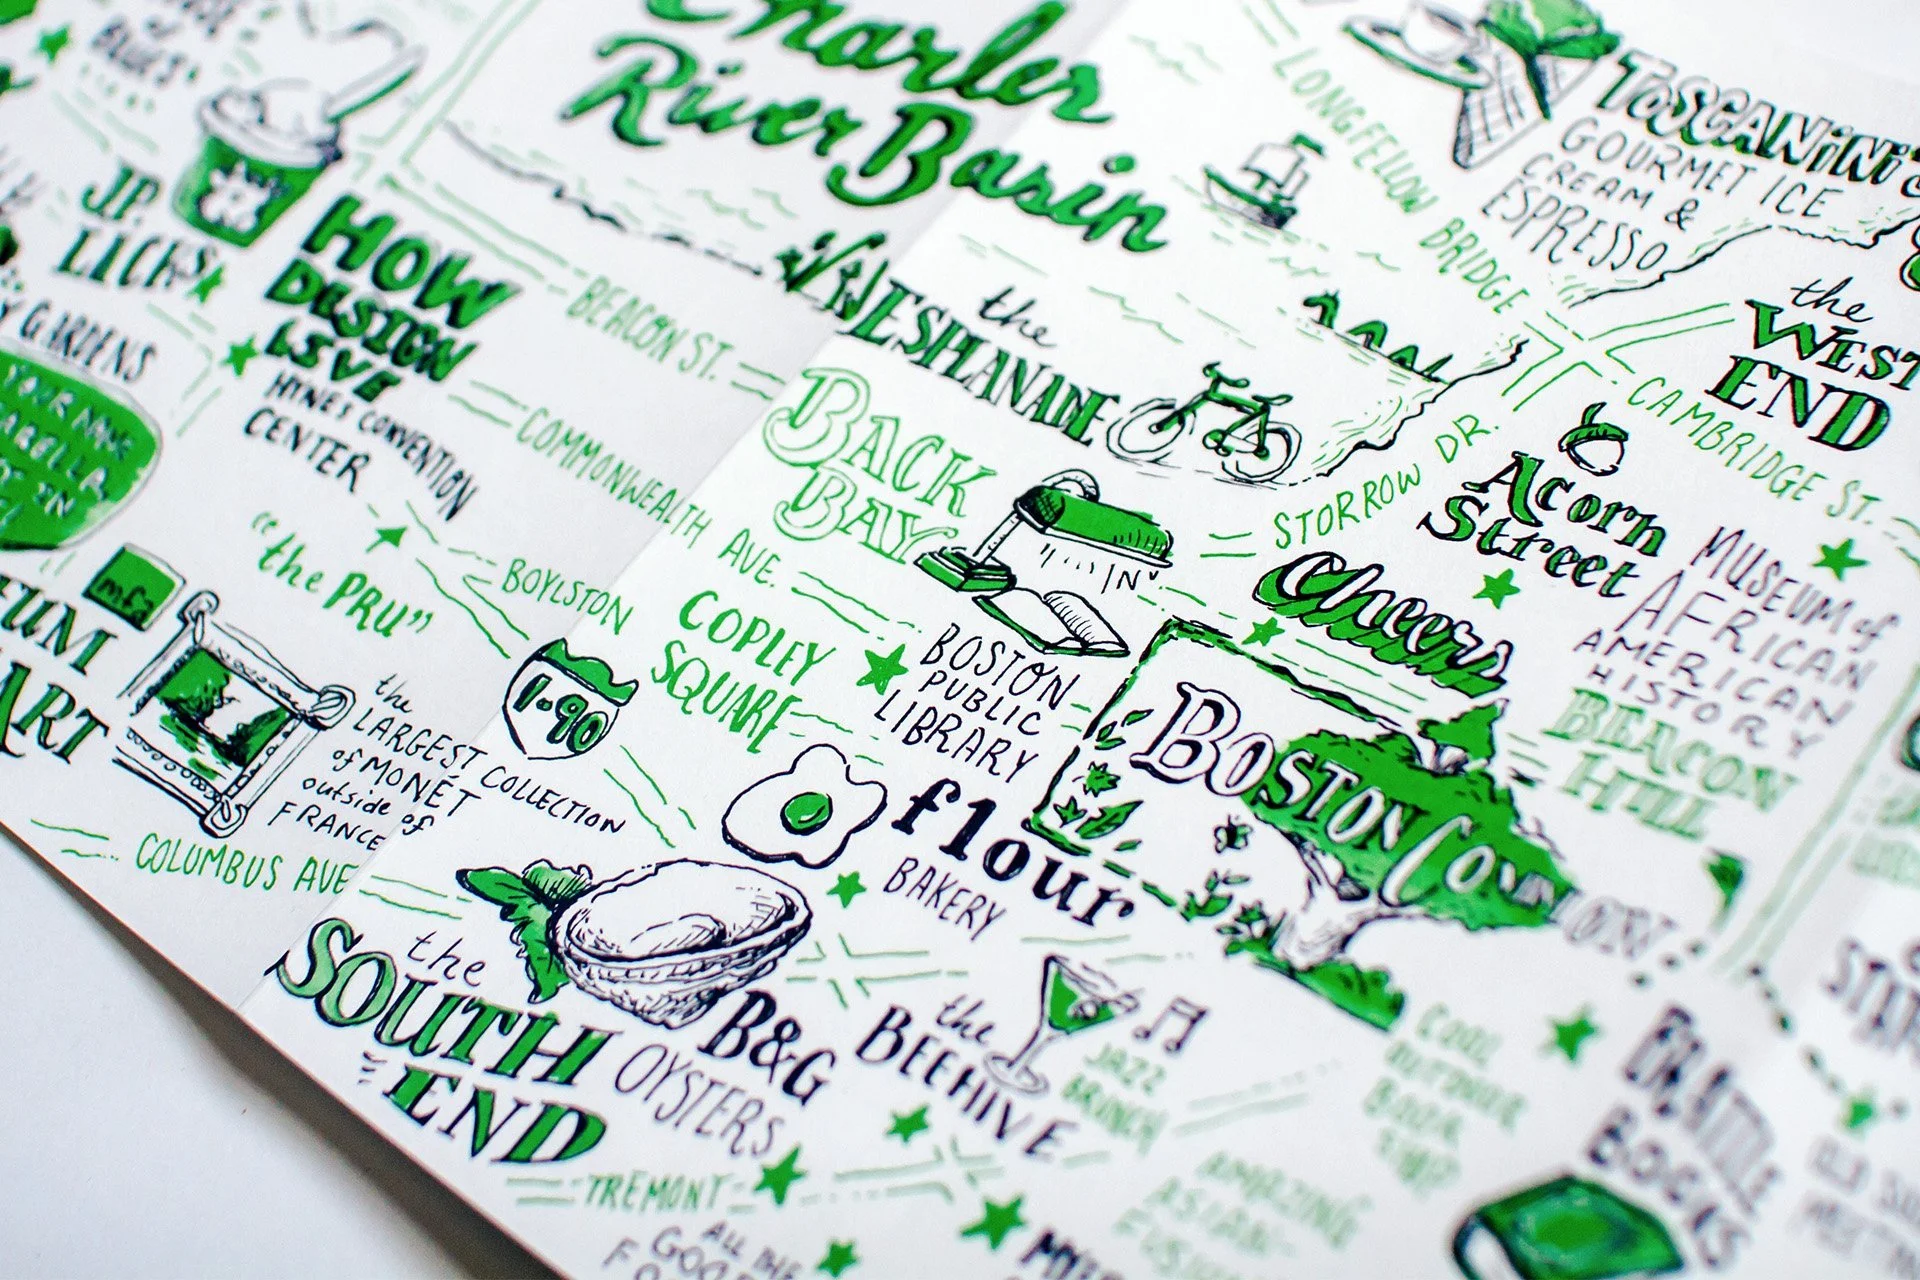 Charles
River Basin
LONGFELLOW BRIDGE
TOSCANINI'S
GOURMET ICE
CREAM &
ESPRESSO
of
BLUES
J.P.
LICKS
HOW
DESIGN
LIVE
HYNES CONVENTION
CENTER
GARDENS
YOUR NAME
BEACON ST.
the
ESPLANADE
the
WEST
END
CAMBRIDGE ST.
STORROW DR.
Acorn
Street
BACK
BAY
COMMONWEALTH AVE.
"the PRU"
BOYLSTON
I-90
COPLEY
SQUARE
BOSTON
PUBLIC
LIBRARY
Cheers
MUSEUM of
AFRICAN
AMERICAN
HISTORY
BEACON
HILL
BOSTON COMMON
mfa
ART
the
LARGEST COLLECTION
of MONET
outside of
FRANCE
COLUMBUS AVE
flour
BAKERY
the
SOUTH
END
B&G
OYSTERS
the
BEEHIVE
JAZZ
BRUNCH
TREMONT
ALL THE
GOOD
AMAZING
ASIAN
BOOKS